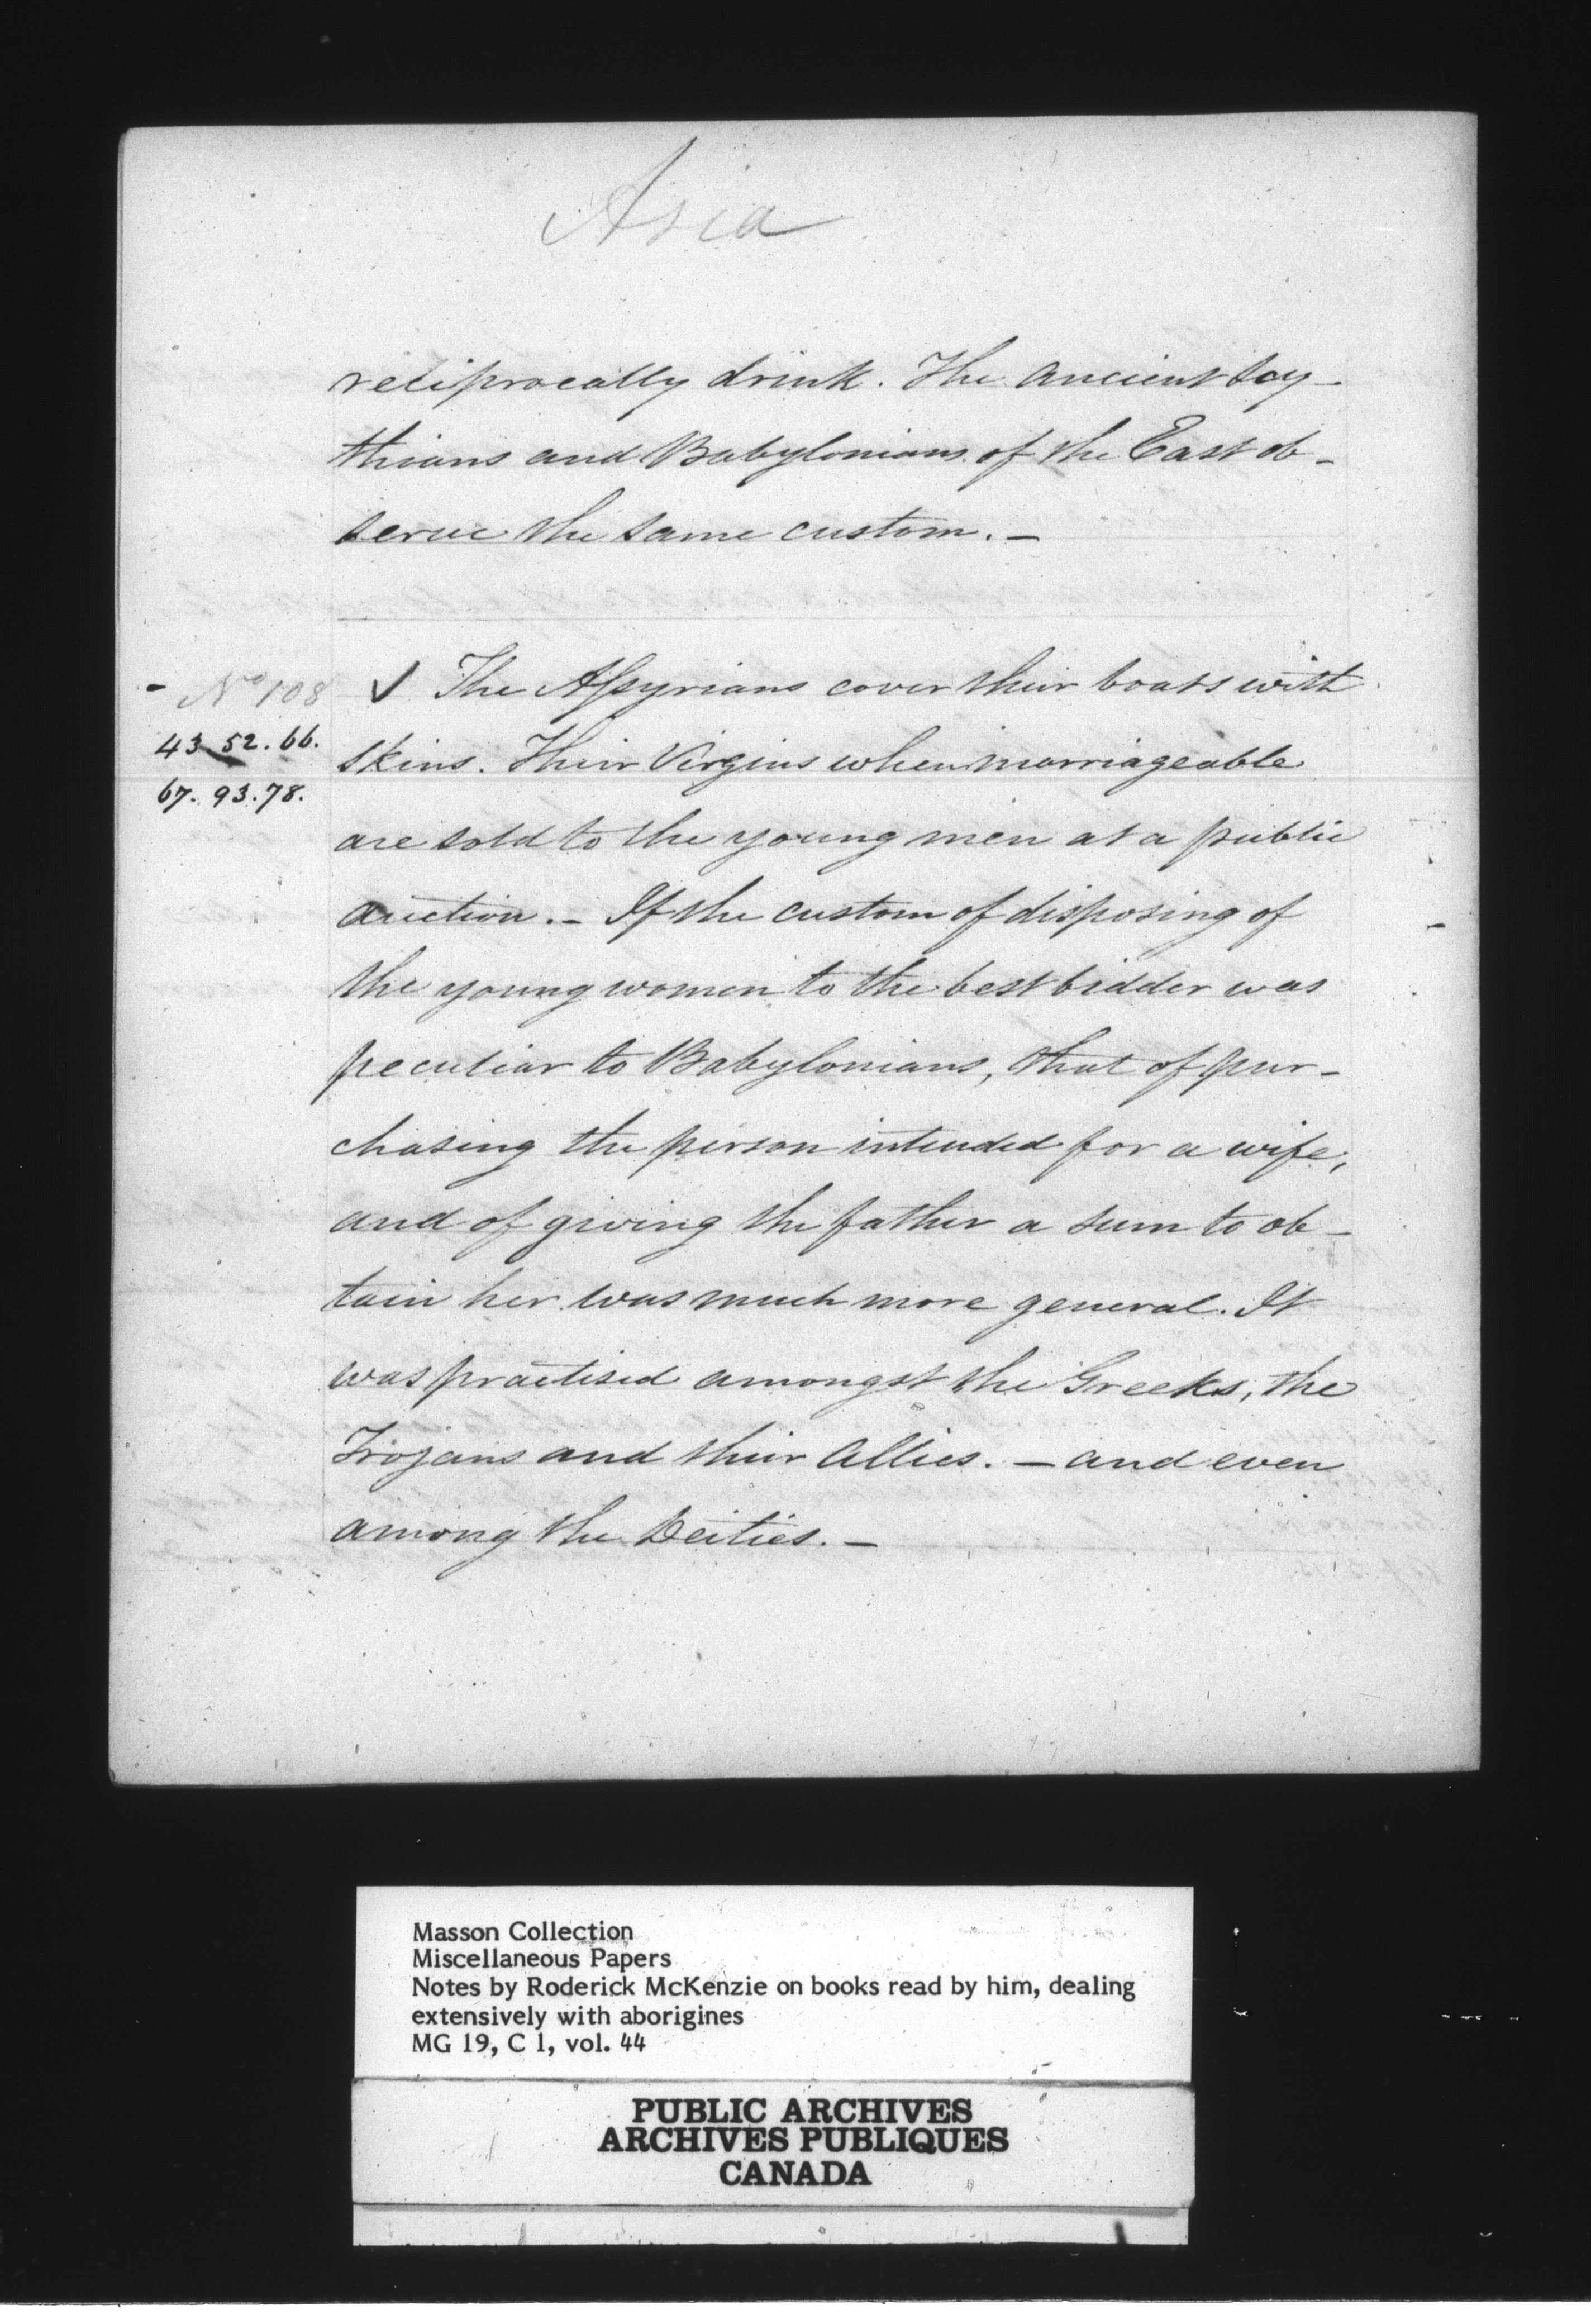 Asia
reciprocally drink. The ancient Scy-
thians and Babylonians of the East ob-
serve the same custom. -
- No 108
43 52. 66.
67. 93. 78.
✓ The Assyrians cover their boats with
skins. Their Virgins when marriageable
are sold to the young men at a public
auction. - If the custom of disposing of
the young women to the best bidder was
peculiar to Babylonians, that of pur-
chasing the person intended for a wife,
and of giving the father a sum to ob-
tain her was much more general. It
was practised amongst the Greeks, the
Trojans and their Allies. - and even
among the Deities. -
Masson Collection
Miscellaneous Papers
Notes by Roderick McKenzie on books read by him, dealing
extensively with aborigines
MG 19, C 1, vol. 44
PUBLIC ARCHIVES
ARCHIVES PUBLIQUES
CANADA